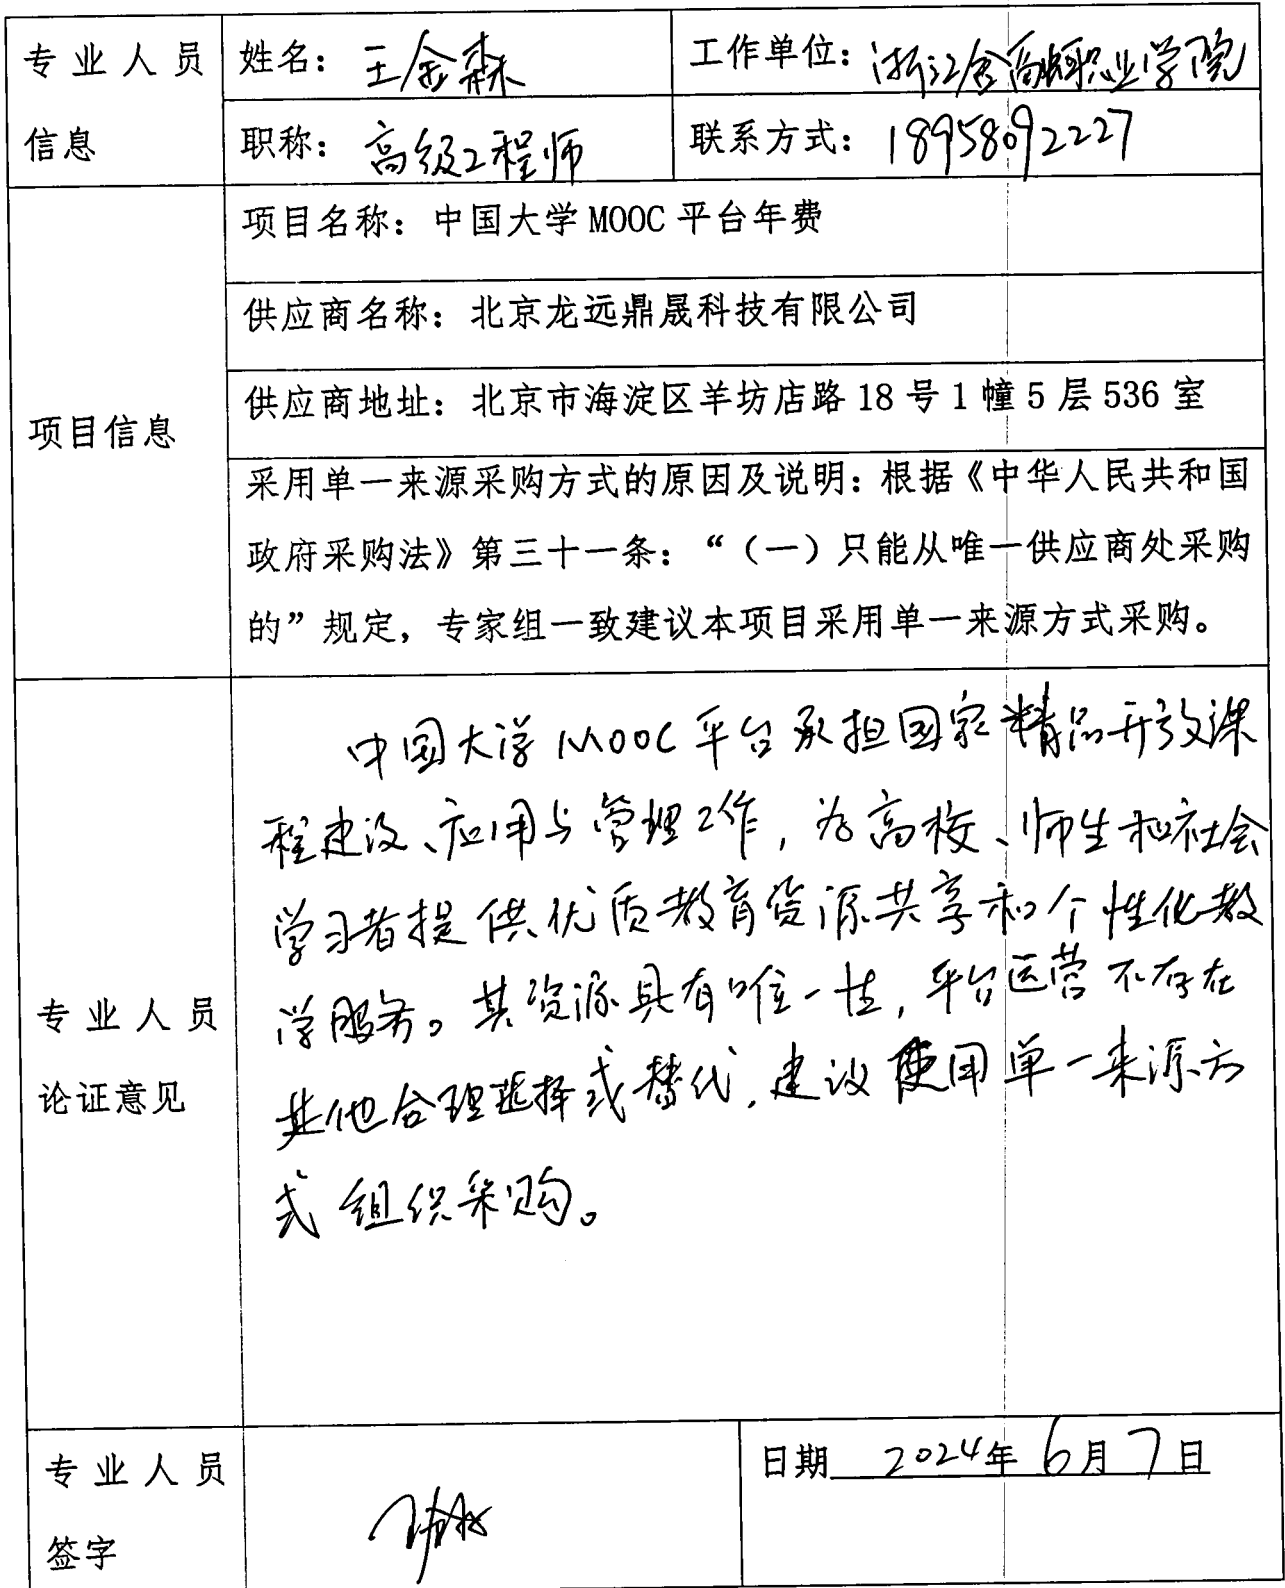 专业人员信息
姓名：王金森
工作单位：浙江金融职业学院
职称：高级工程师
联系方式：18958092227
项目信息
项目名称：中国大学 MOOC 平台年费
供应商名称：北京龙远鼎晟科技有限公司
供应商地址：北京市海淀区羊坊店路 18 号 1 幢 5 层 536 室
采用单一来源采购方式的原因及说明：根据《中华人民共和国
政府采购法》第三十一条：“（一）只能从唯一供应商处采购
的”规定，专家组一致建议本项目采用单一来源方式采购。
专业人员
论证意见
中国大学 MOOC 平台承担国家精品开放课
程建设、应用与管理工作，为高校、师生和社会
学习者提供优质教育资源共享和个性化教
学服务。其资源具有唯一性，平台运营不存在
其他合理选择或替代，建议使用单一来源方
式组织采购。
专业人员
签字
日期 2024年 6月 7日